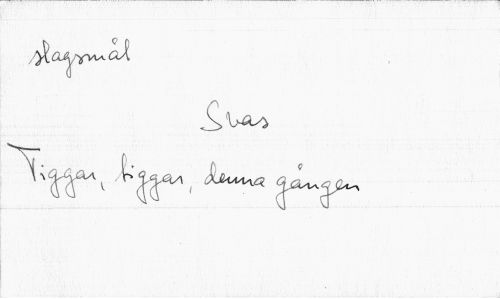 slagsmål
Svas
Tiggar, tiggar, denna gången